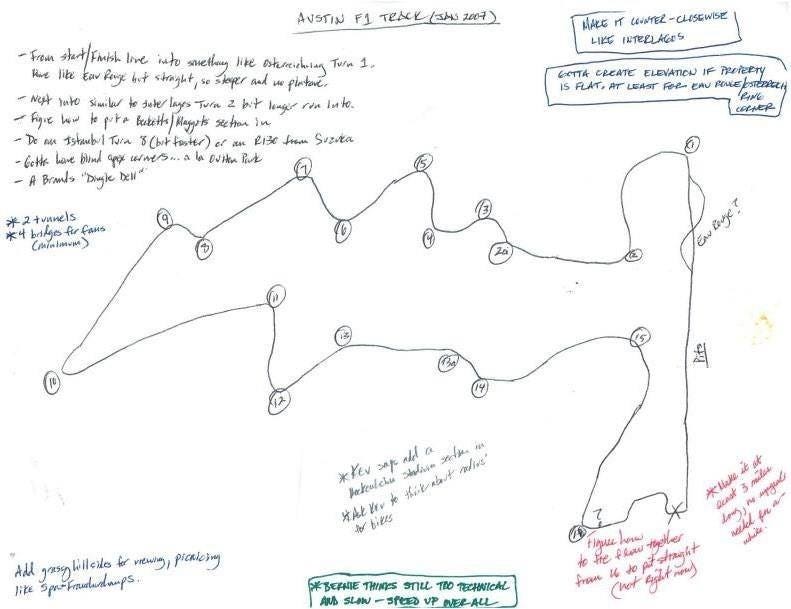 AUSTIN F1 TRACK (JAN 2007)
MAKE IT COUNTER-CLOSEWISE
LIKE INTERLAGOS
GOTTA CREATE ELEVATION IF PROPERTY
IS FLAT. AT LEAST FOR EAU ROUGE/OSTERREICH
RING
CORNER
- From start/Finish line into something like Osterreichring Turn 1.
like Eau Rouge but straight, so steeper and no plateau.
- Next into similar to Interlagos Turn 2 bit longer run into.
- Figure how to put a Becketts/Maggots section in
- Do an Istanbul Turn 8 (bit faster) or an R130 from Suzuka
- Gotta have blind apex corners... a la Oulton Park
- A Brands "Dingle Dell"
* 2 tunnels
* 4 bridges for fans
(minimum)
1
Eau Rouge?
2
2a
3
4
5
6
7
8
9
10
11
12
13
13a
14
15
Pits
16
?
X
* Kev says add a
Hockenheim stadium section in
* Ask Kev to think about radius'
for bikes
* Make it at
least 3 miles
long, no
needed for a
while.
Figure how
to tie flow together
from 16 to pit straight
(not right now)
Add grassy hillsides for viewing, picnicing
like Spa-Francorchamps.
* BERNIE THINKS STILL TOO TECHNICAL
AND SLOW - SPEED UP OVERALL